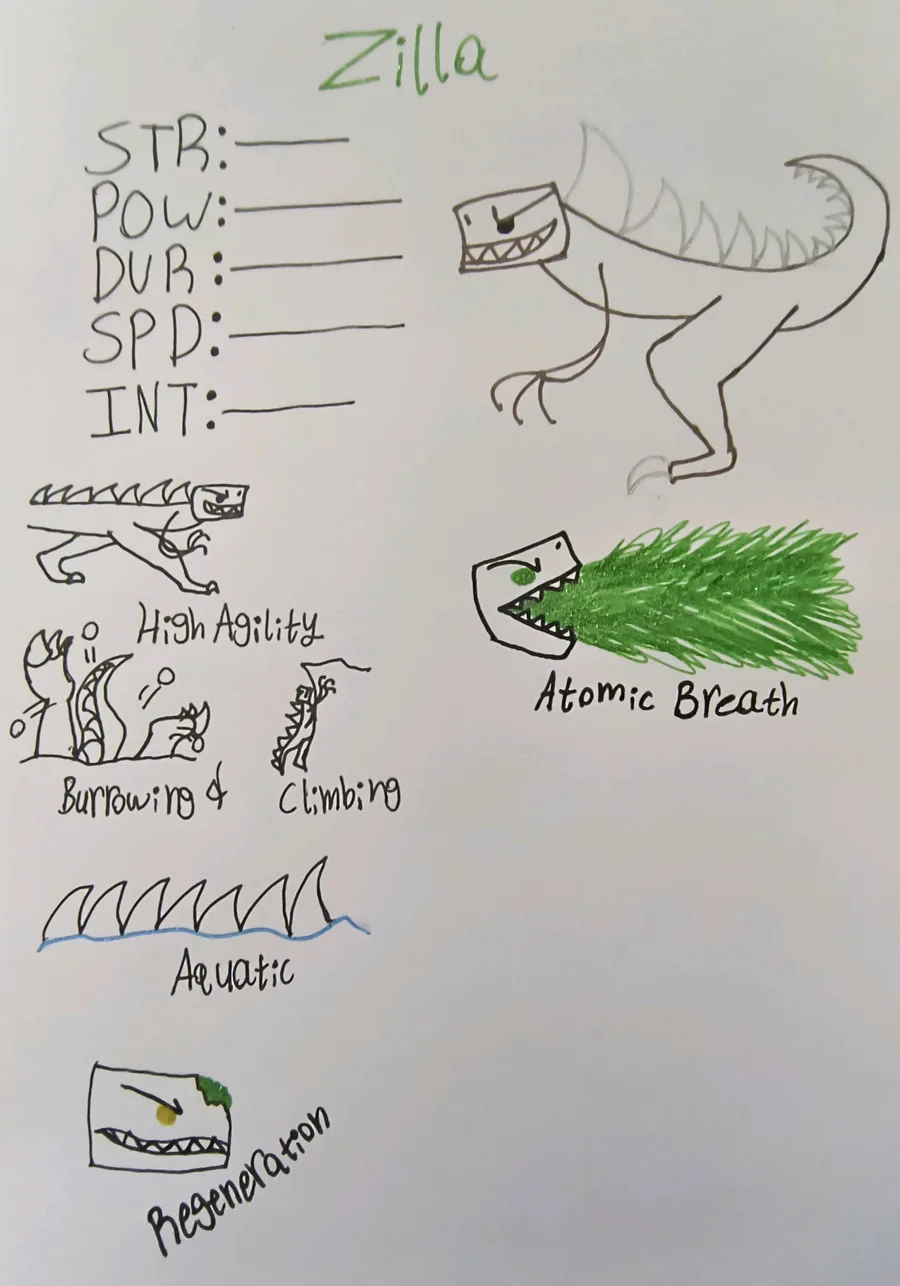 Zilla
STR:
POW:
DUR:
SPD:
INT:
High Agility
Burrowing & Climbing
Atomic Breath
Aquatic
Regeneration